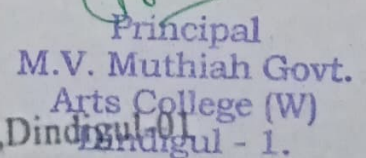 Principal
M.V. Muthiah Govt.
Arts College (W)
,Dindigul-01
Dindigul - 1.